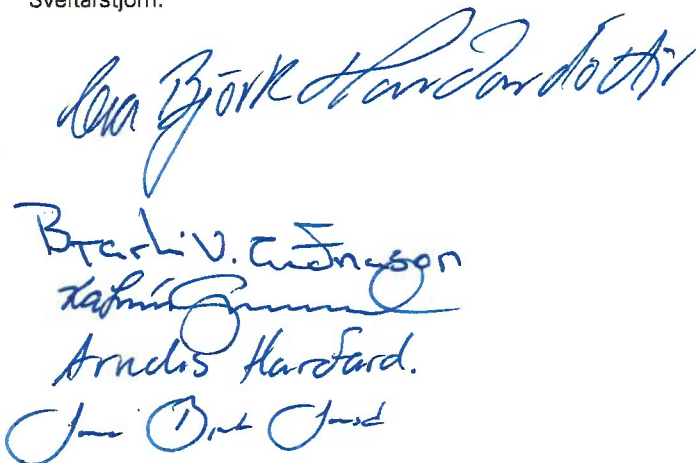 Sveitarstjórn:
Eva Björk Harðardóttir
Bjarki V. Guðnason
Katrín
Arndís Harðard.
Jóna Björk Jónsd